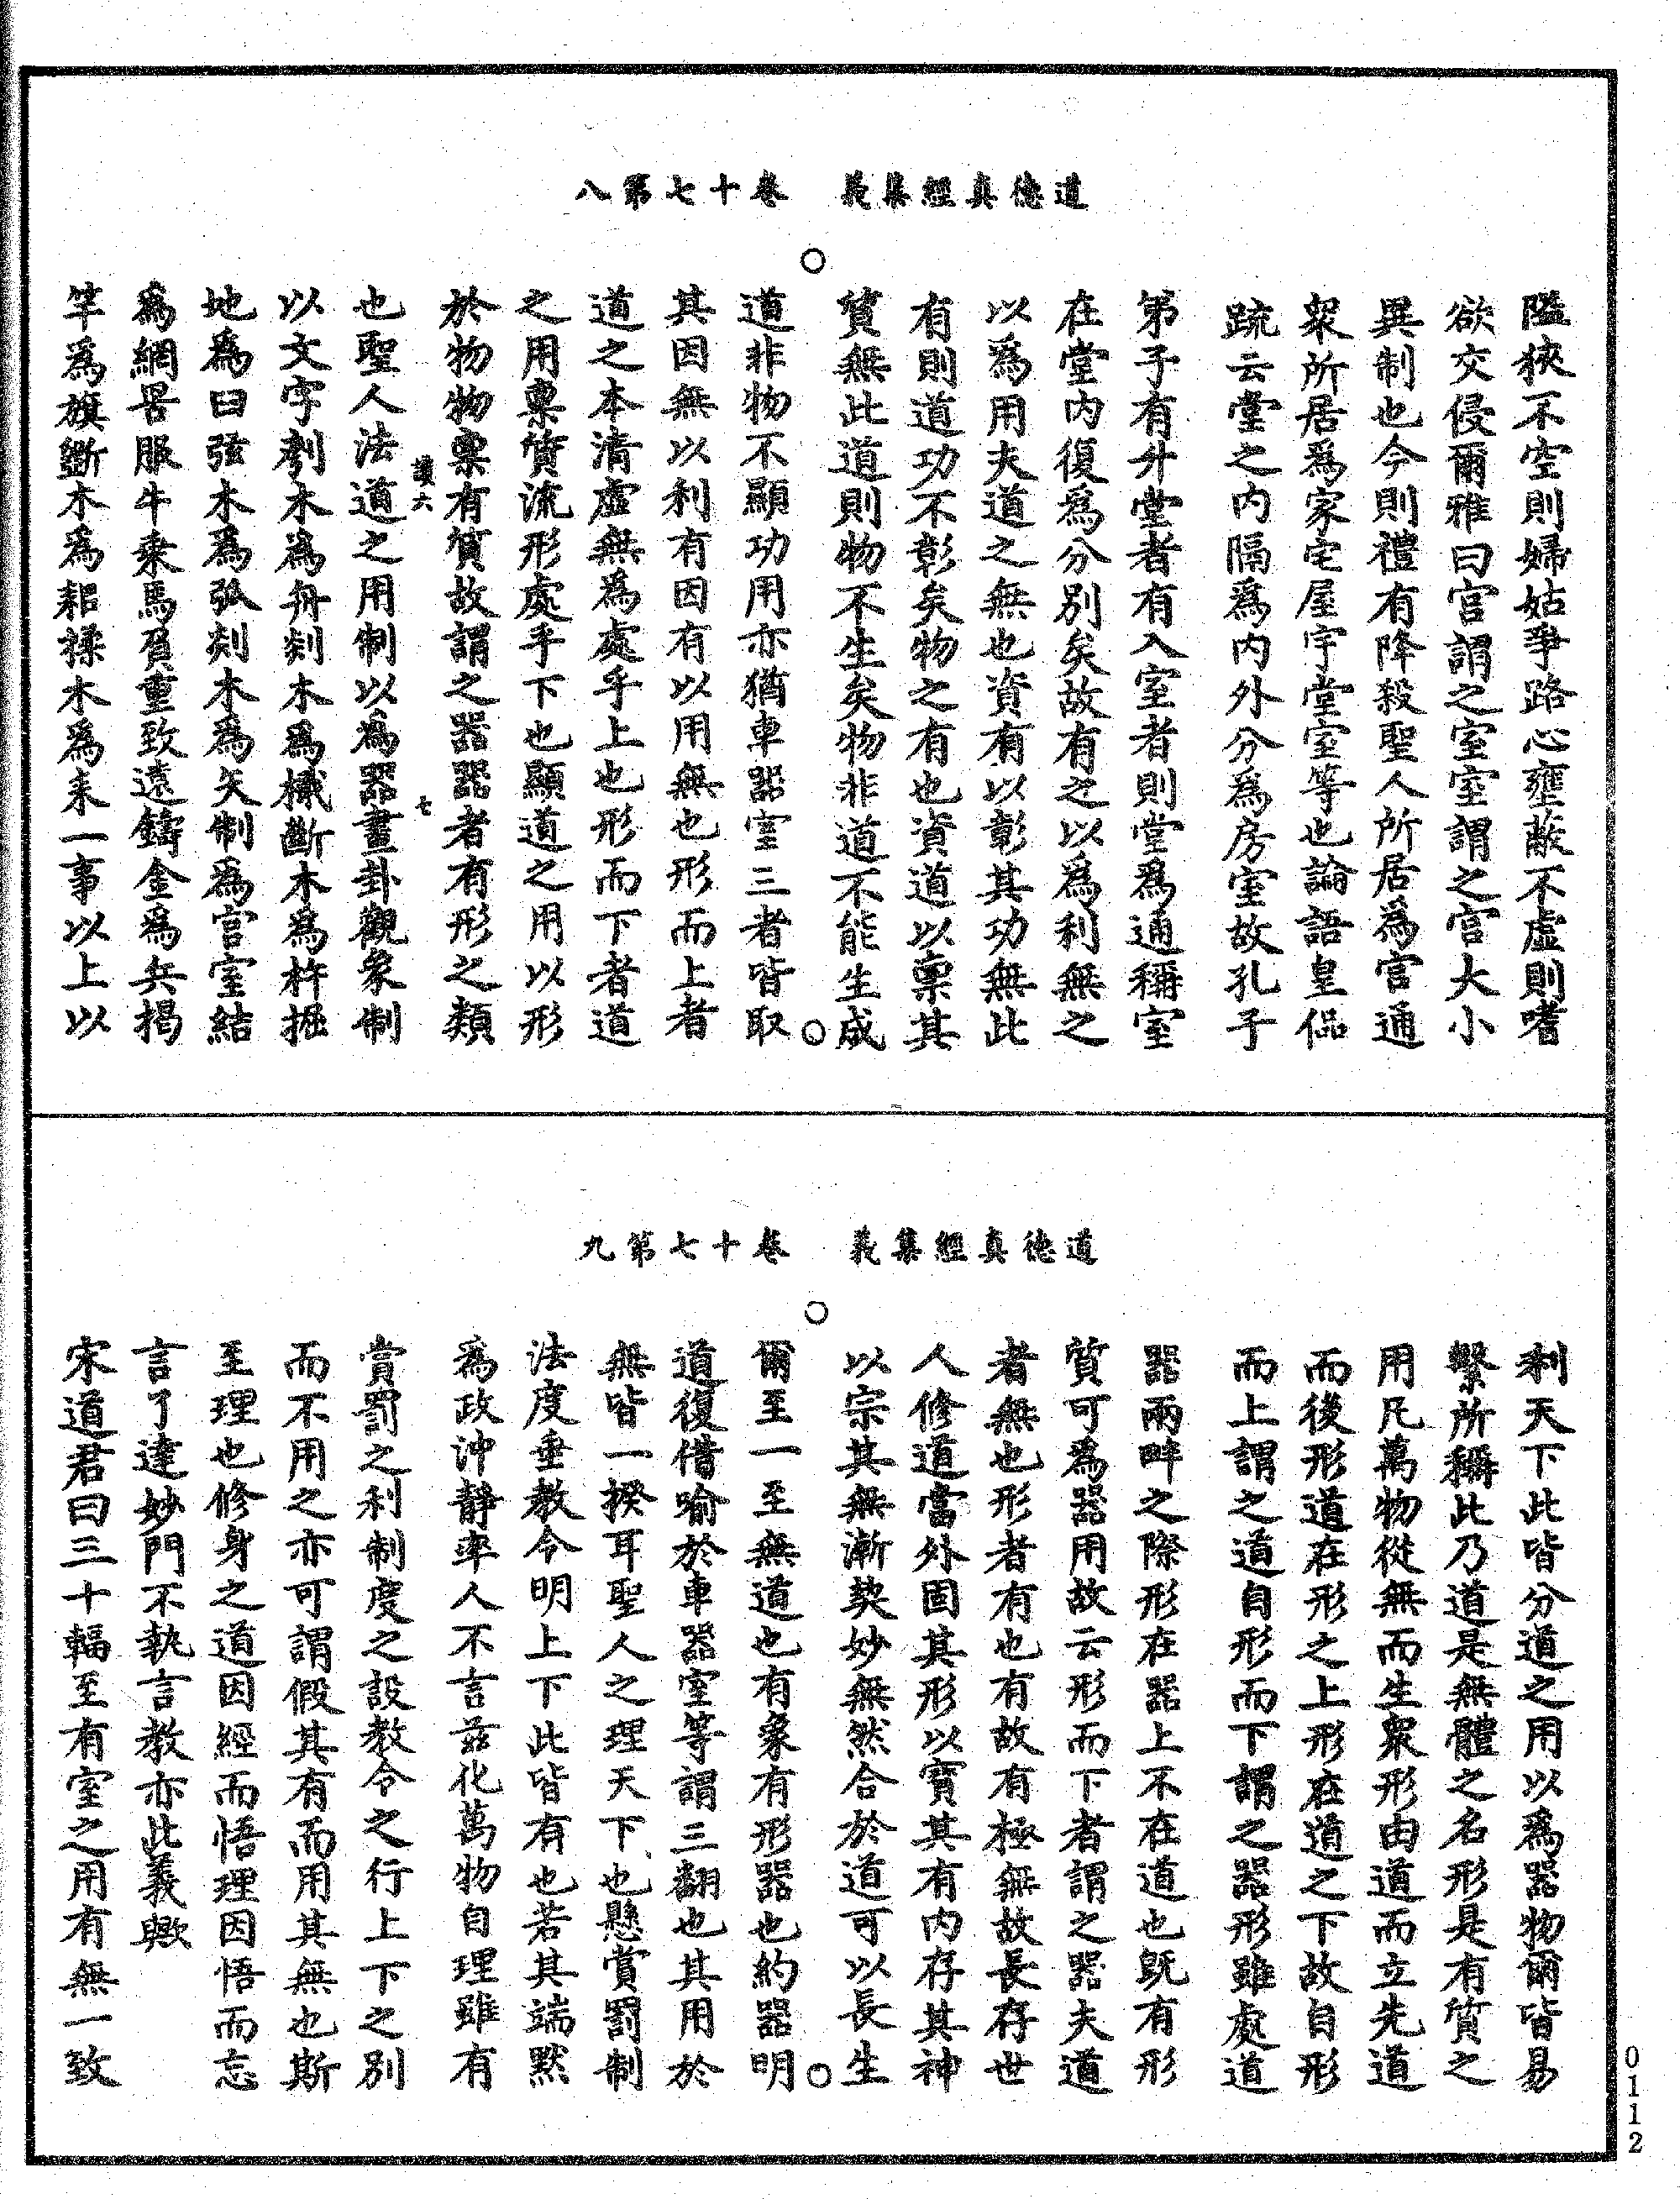 道德真經集義　卷十七第八
隘狹不空則婦姑爭路心壅蔽不虛則嗜
欲交侵爾雅曰宮謂之室室謂之宮大小
異制也今則禮有降殺聖人所居爲宮通
衆所居爲家宅屋宇堂室等也論語皇侃
疏云堂之內隔爲內外分爲房室故孔子
弟子有升堂者有入室者則堂爲通稱室
在堂內復爲分別矣故有之以爲利無之
以爲用夫道之無也資有以彰其功無此
有則道功不彰矣物之有也資道以稟其
質無此道則物不生矣物非道不能生成
道非物不顯功用亦猶車器室三者皆取
其因無以利有因有以用無也形而上者
道之本清虛無爲處乎上也形而下者道
之用稟質流形處乎下也顯道之用以形
於物物稟有質故謂之器器者有形之類
讚六　七
也聖人法道之用制以爲器畫卦觀象制
以文字刳木爲舟剡木爲檝斷木爲杵掘
地爲臼弦木爲弧剡木爲矢制爲宮室結
爲網罟服牛乘馬負重致遠鑄金爲兵揭
竿爲旗斲木爲耜揉木爲耒一事以上以
道德真經集義　卷十七第九
利天下此皆分道之用以爲器物爾皆易
繫所稱此乃道是無體之名形是有質之
用凡萬物從無而生衆形由道而立先道
而後形道在形之上形在道之下故自形
而上謂之道自形而下謂之器形雖處道
器兩畔之際形在器上不在道也旣有形
質可爲器用故云形而下者謂之器夫道
者無也形者有也有故有極無故長存世
人修道當外固其形以寶其有內存其神
以宗其無漸契妙無然合於道可以長生
爾至一至無道也有象有形器也約器明
道復借喻於車器室等謂三翻也其用於
無皆一揆耳聖人之理天下也懸賞罰制
法度垂教令明上下此皆有也若其端默
爲政沖靜率人不言茲化萬物自理雖有
賞罰之利制度之設教令之行上下之別
而不用之亦可謂假其有而用其無也斯
至理也修身之道因經而悟理因悟而忘
言了達妙門不執言教亦此義歟
宋道君曰三十輻至有室之用有無一致
0112